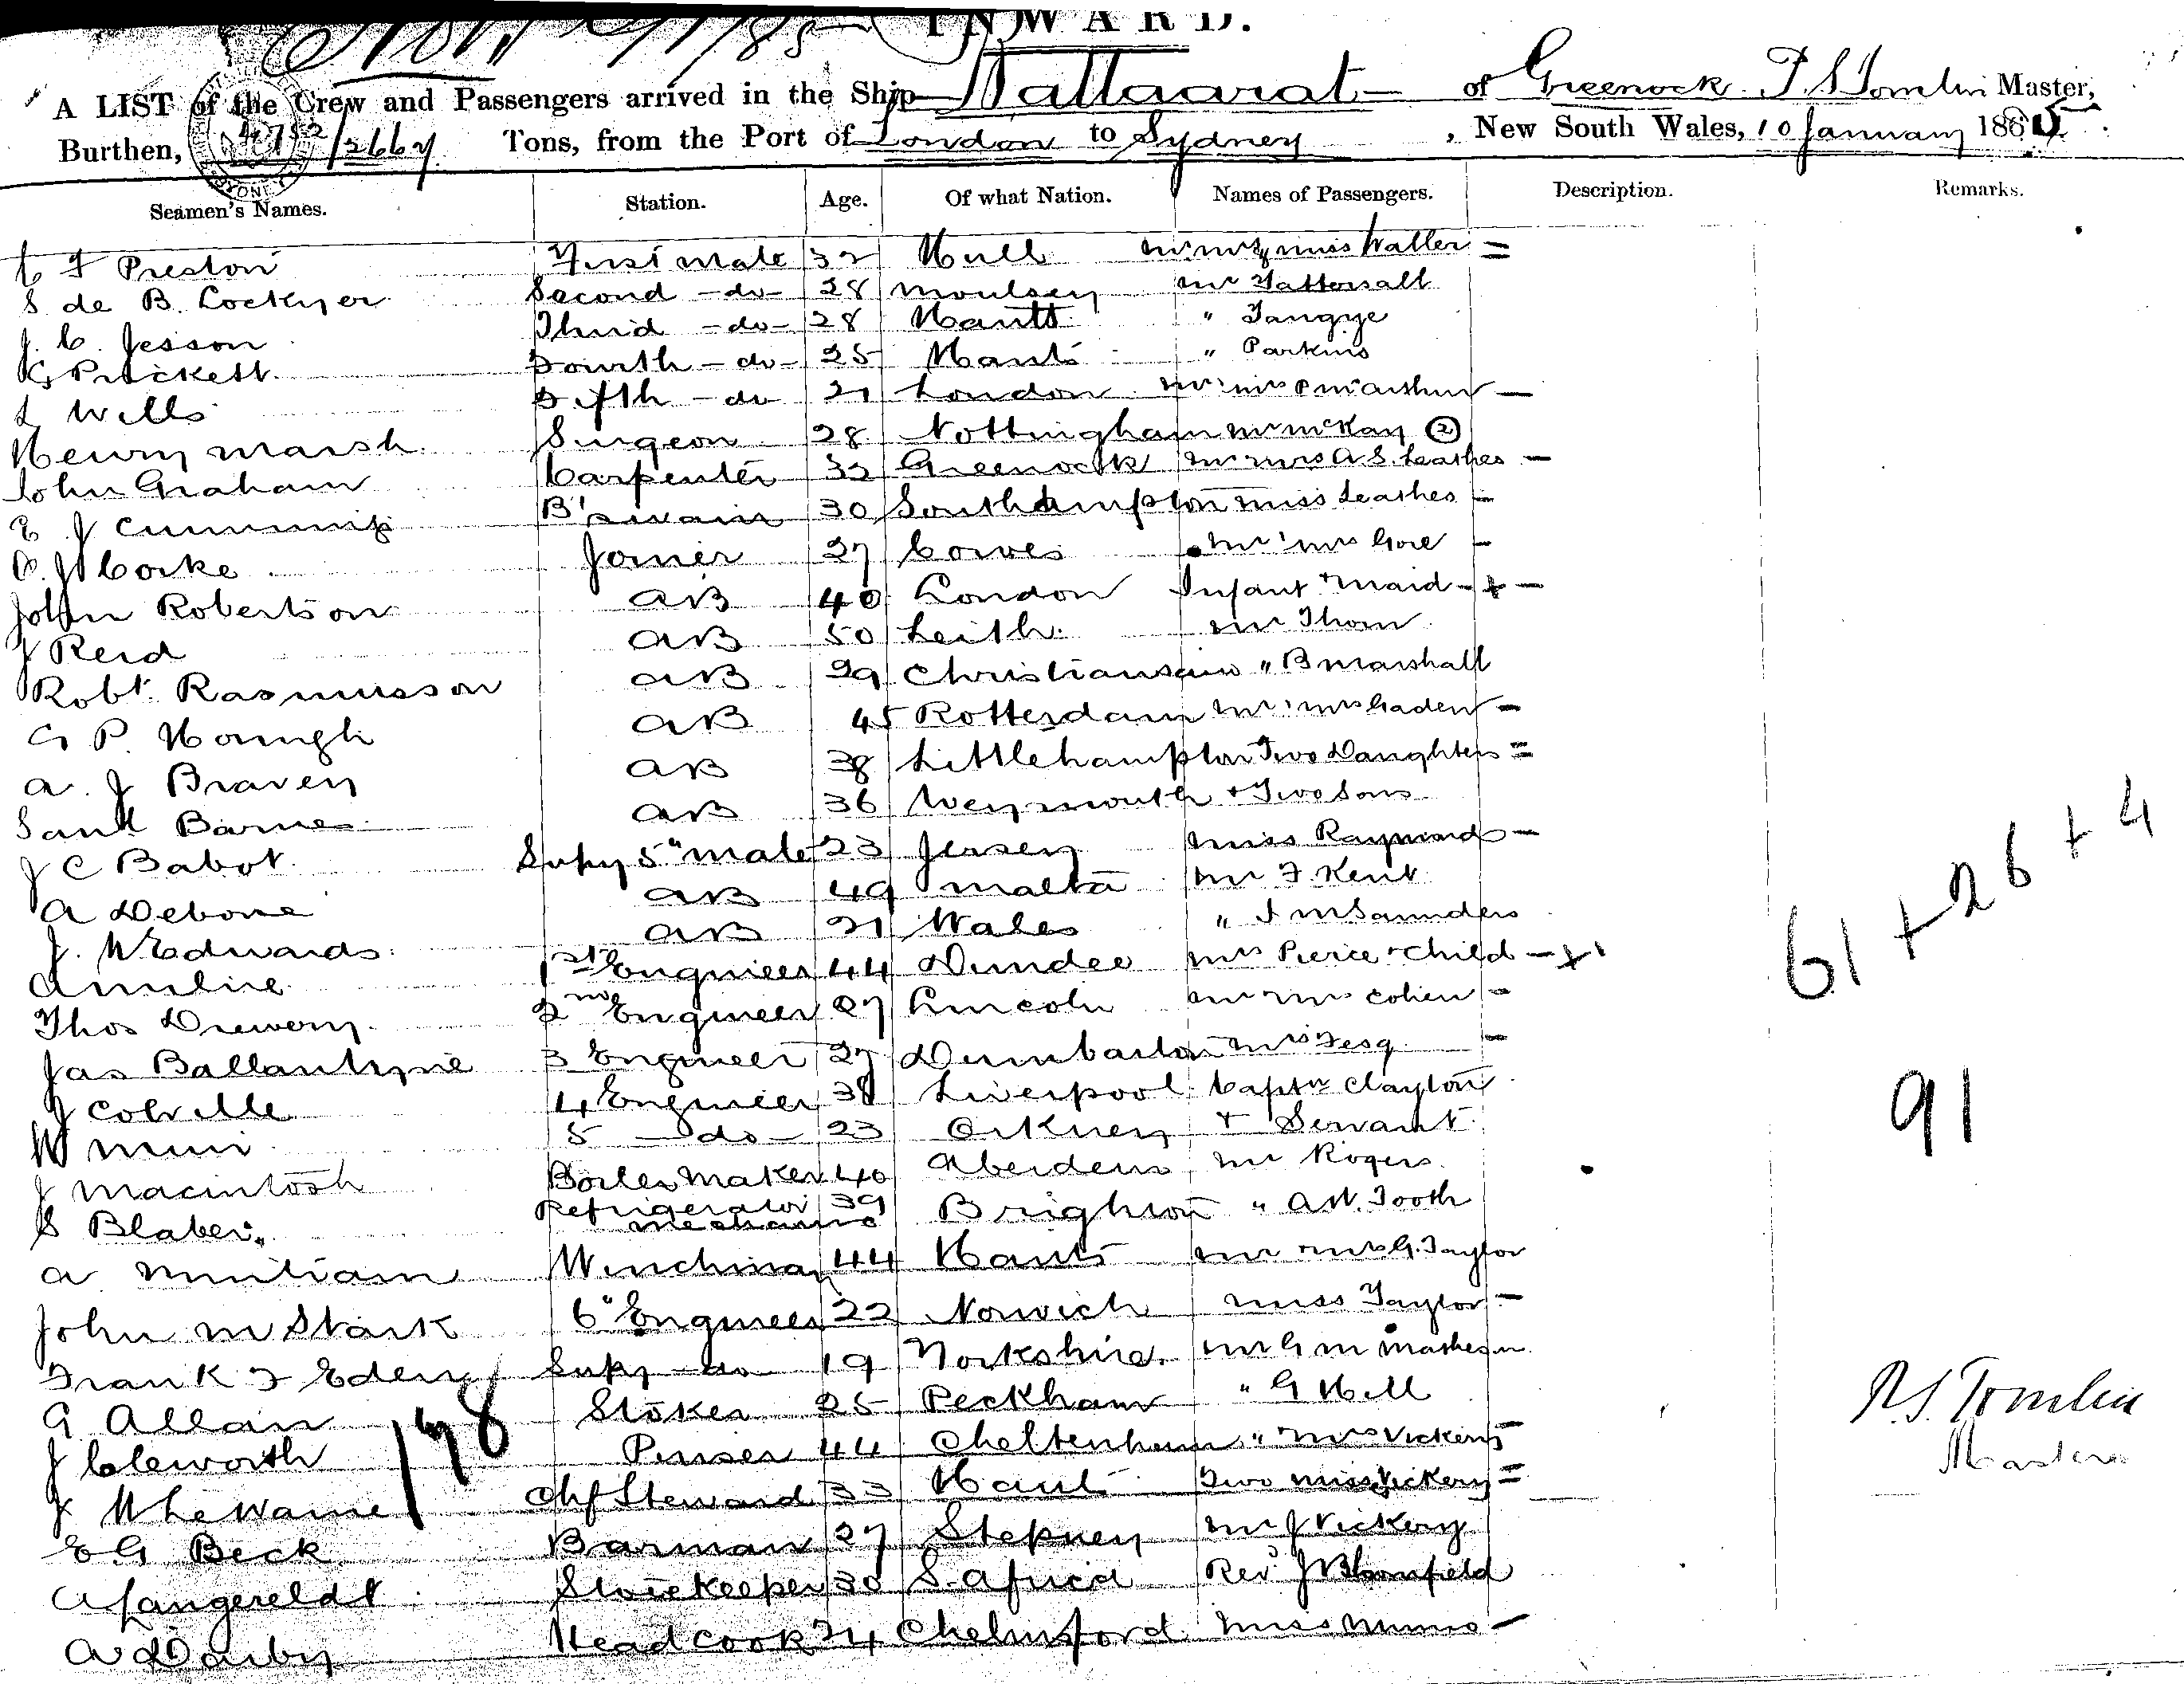 INWARD.
A LIST of the Crew and Passengers arrived in the Ship Ballaarat of Greenock T. S Tomlin Master,
Burthen, /2664 Tons, from the Port of London to Sydney, New South Wales, 10 January 1885.
Seamen's Names. Station. Age. Of what Nation. Names of Passengers. Description. Remarks.
C F Preston First Mate 32 Hull Mr Mrs & Miss Waller =
S de B. Lockyer Second -do- 28 Moulsey Mr Tattersall
J. C. Jesson Third -do- 28 Hants " Tangye
G Prickett Fourth -do- 25 Hants " Parkins
L Wells Fifth -do 21 London Mr & Mrs P McArthur -
Henry Marsh Surgeon 28 Nottingham Mr McKay 2
John Graham Carpenter 32 Greenock Mr Mrs A. S. Leathes -
E J Cummings B'swain 30 Southampton Miss Leathes -
J Corke Joiner 27 Cowes Mr & Mrs Gore -
John Robertson AB 40 London Infant & Maid - + -
J Reid AB 50 Leith. Mr Thom
Robt. Rasmusson AB 29 " B Marshall
G P. Hough AB 45 Rotterdam Mr & Mrs Gaden -
A. J Braven AB 38 Littlehampton Two Daughters =
Saml Barnes AB 36 Weymouth + Two Sons
J C Babot. Supy 5" Mate 23 Jersey Miss Raymond -
A Debone AB 49 Malta Mr F. Kent
J. W. Edwards. AB 21 Wales " J M Saunders
1st Engineer 44 Dundee Mrs Pierce & Child - + 1
Thos Drewery. 2nd Engineer 27 Lincoln Mr Mrs Cohen -
Jas Ballantyne 3 Engineer 27 Dumbarton Mrs Fesq -
J Colville 4 Engineer 38 Liverpool Captn Clayton
W Muir 5 -do- 23 Orkney + Servant
J Macintosh Boiler Maker 40 Aberdeen Mr Rogers
S Blaber. Refrigerator mechanic 39 Brighton " A W. Tooth
A Winchman 44 Hants Mr Mrs G. Taylor
John M Stark 6" Engineer 22 Norwich Miss Taylor -
Frank F Edery Supy -do 19 Yorkshire. Mr G M Matheson
G Allan Stoker 25 Peckham " G Hill
J Cleworth Purser 44 Cheltenham " Mrs Vickery -
Chf Steward 33 Hants Two Miss Vickery =
E G Beck Barman 27 Stepney Mr J Vickery
A Langereldt Storekeeper 30 S. Africa Revd J Blomfield
A Darby Head Cook 34 Chelmsford Miss Munro -
148
61 + 26 + 4
91
T. S. Tomlin
Master